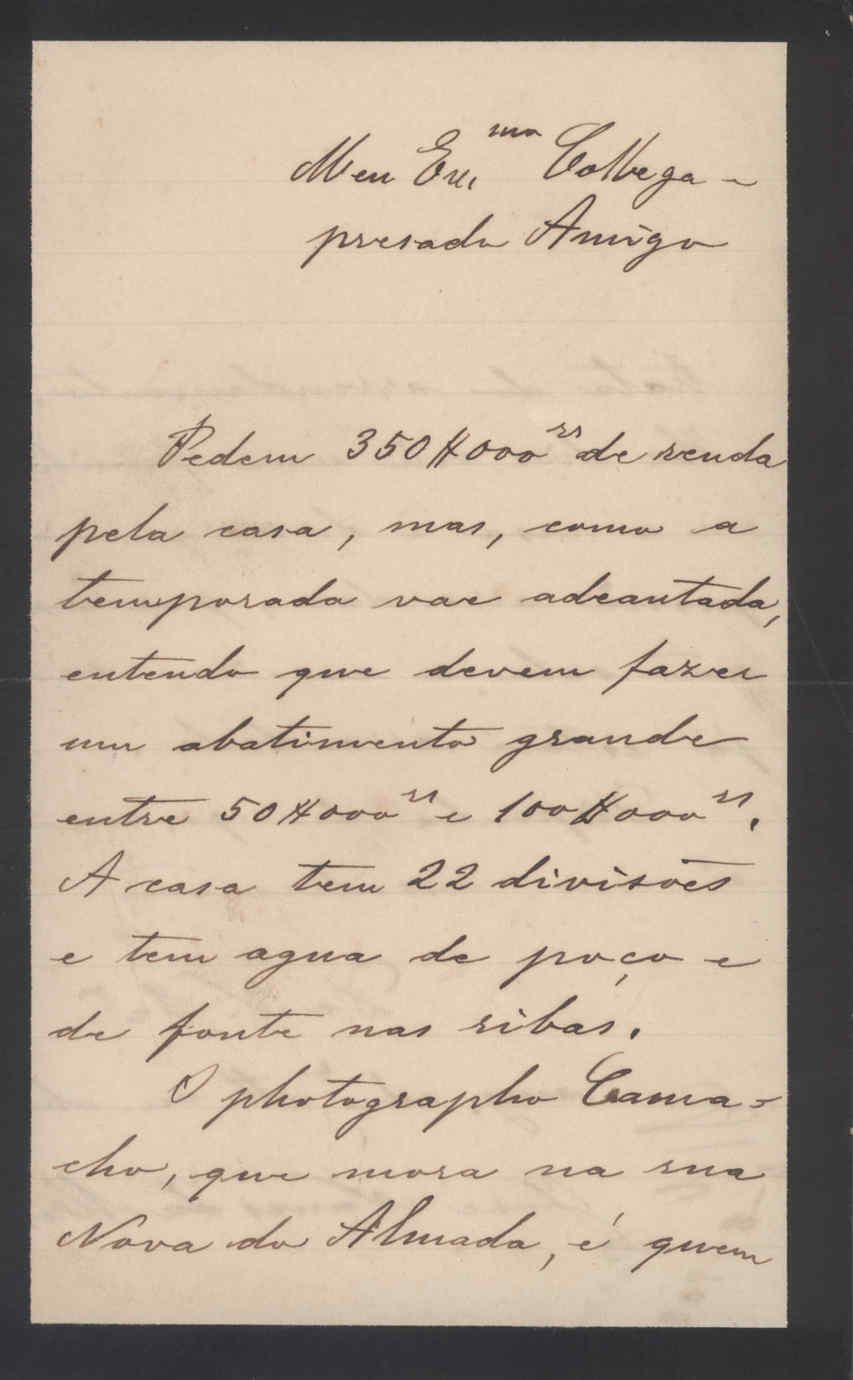 Meu Ex.mo Collega e
presado Amigo
Pedem 350$000rs de renda
pela casa, mas, como a
temporada vae adeantada,
entendo que devem fazer
um abatimento grande
entre 50$000rs e 100$000rs.
A casa tem 22 divisões
e tem agua de poço e
de fonte nas ribas.
O photographo Cama-
cho, que mora na rua
Nova do Almada, é quem